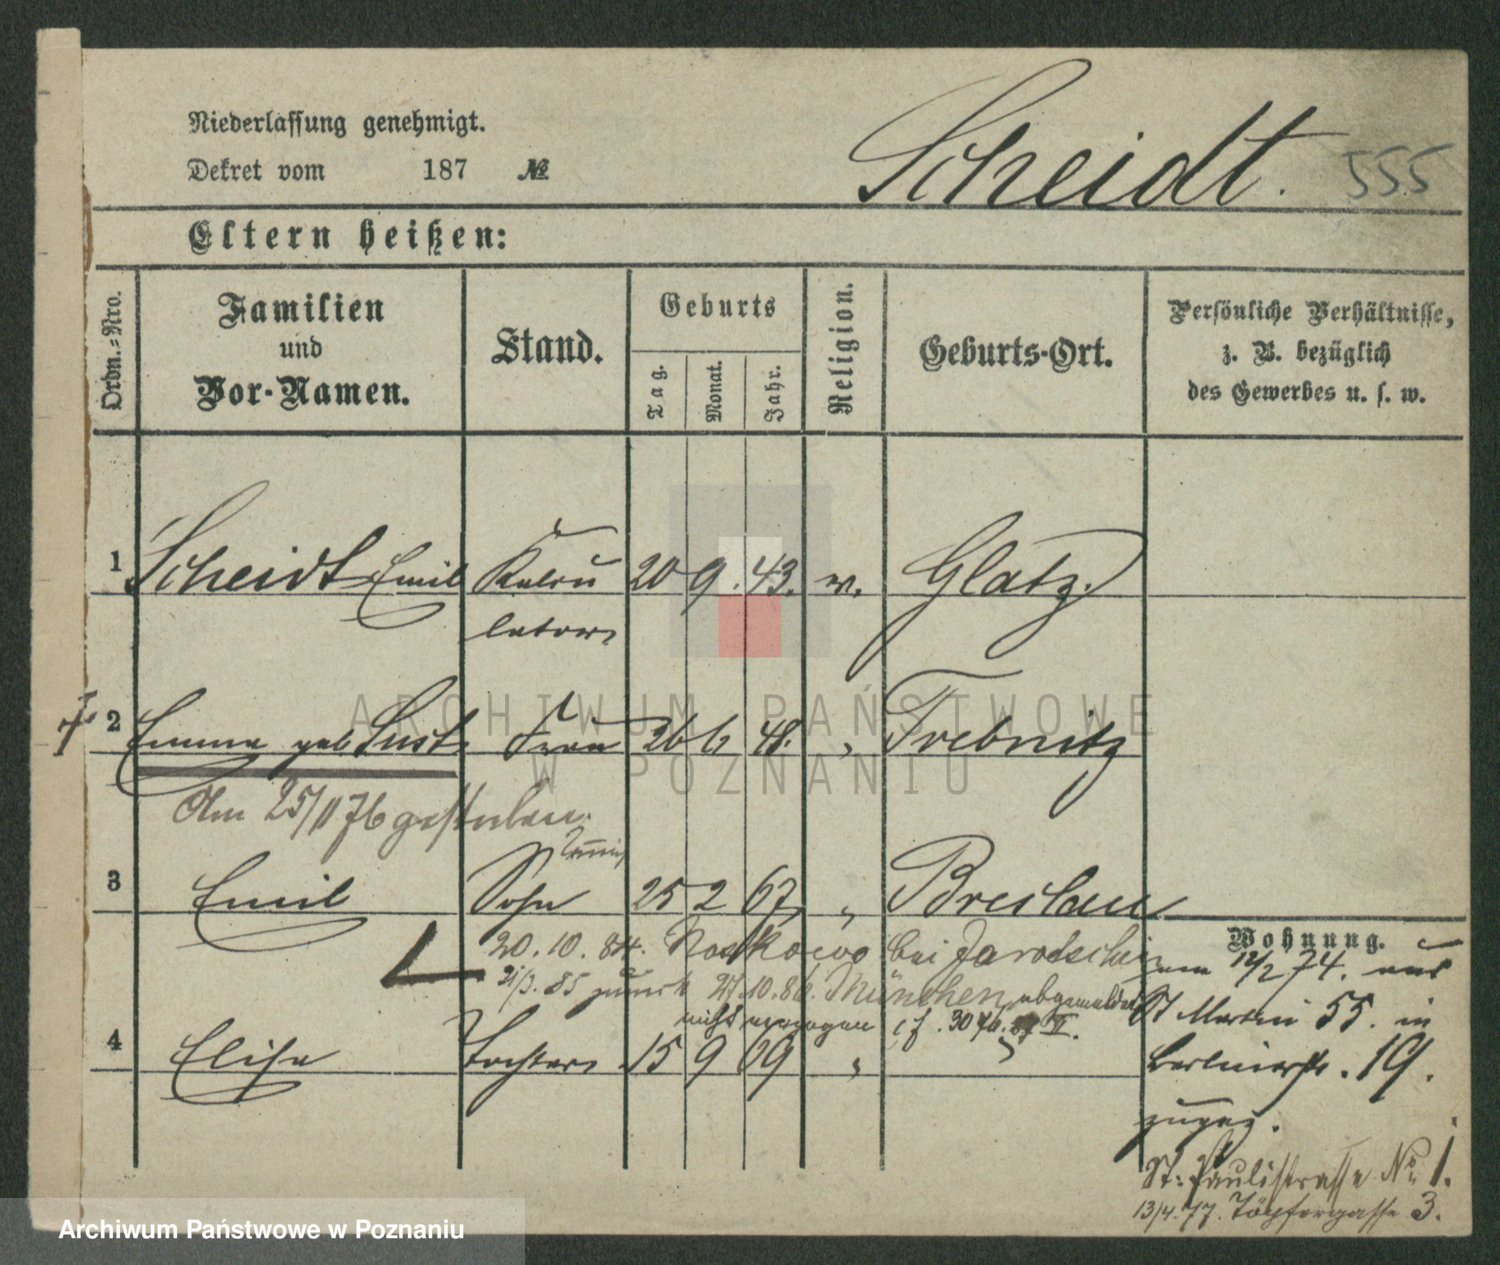 Niederlassung genehmigt.
Dekret vom 187 №
Scheidt. 555
Eltern heißen:
Ordn.-Nro.
Familien
und
Vor-Namen.
Stand.
Geburts
Tag.
Monat.
Jahr.
Religion.
Geburts-Ort.
Persönliche Verhältnisse,
z. B. bezüglich
des Gewerbes u. s. w.
1 Scheidt Emil Kalku 20 9. 43. ev. Glatz.
lator
2 Emma geb Lust Frau 26 6 48. " Trebnitz
Am 25/11 76 gestorben.
3 Emil Sohn 25 2 67 " Breslau
20.10.84. bei Jarotschin
21/3. 85 zurück 27.10.86. München abgemeldet
nicht verzogen cf.
4 Elise Tochter 15 9 69 "
Wohnung.
am 12/2 74. aus
St Martin 55. in
Berlinerstr. 19.
zugez.
St: Paulistrasse No 1.
13/4.77. Töpfergasse 3.
ARCHIWUM PAŃSTWOWE
W POZNANIU
Archiwum Państwowe w Poznaniu